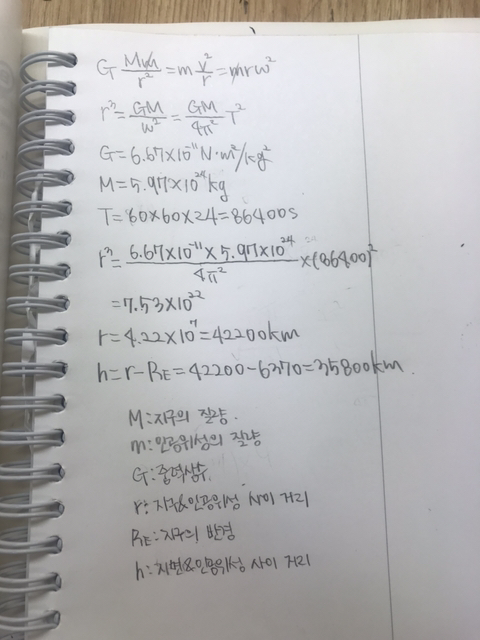 G Mm/r² = m v²/r = mrω²
r³ = GM/ω² = GM/4π² T²
G = 6.67×10⁻¹¹ N·m²/kg²
M = 5.97×10²⁴ kg
T = 60×60×24 = 86400s
r³ = 6.67×10⁻¹¹ × 5.97×10²⁴/4π² ×(86400)²
= 7.53×10²²
r = 4.22×10⁷ = 42200km
h = r - R_E = 42200 - 6370 = 35800km.
M : 지구의 질량.
m : 인공위성의 질량
G : 중력상수.
r : 지구&인공위성 사이 거리
R_E : 지구의 반경
h : 지면&인공위성 사이 거리